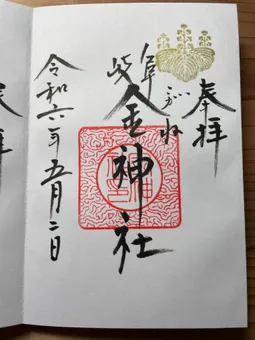 奉拝
こがね
岐阜
金神社
令和六年五月二日